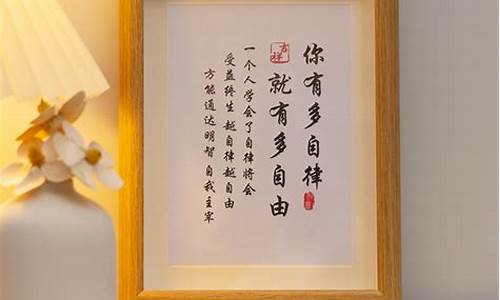 你有多自律
就有多自由
吉祥
一个人学会了自律将会
受益终生越自律越自由
方能通达明智自我主宰